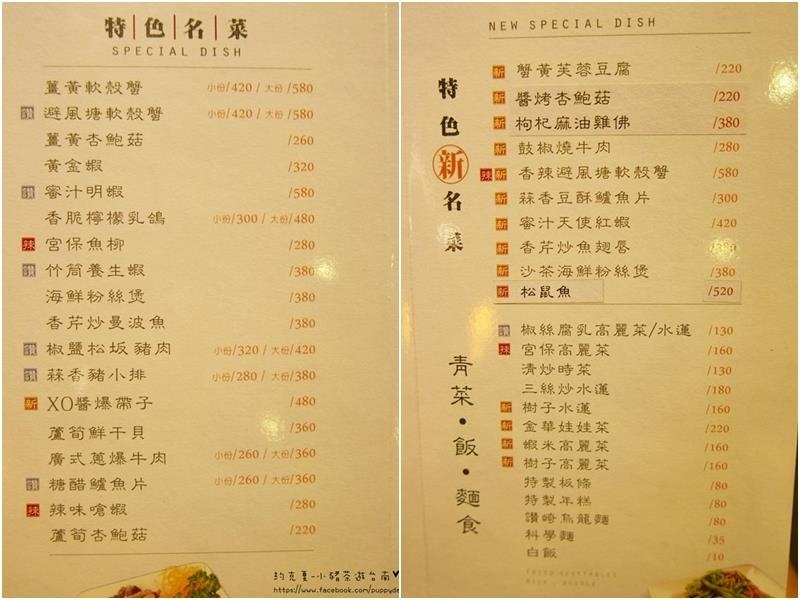 特色名菜
SPECIAL DISH
薑黃軟殼蟹 小份/420 / 大份/580
讚 避風塘軟殼蟹 小份/420 / 大份/580
薑黃杏鮑菇 /260
黃金蝦 /320
讚 蜜汁明蝦 /580
香脆檸檬乳鴿 小份/300 / 大份/480
辣 宮保魚柳 /280
讚 竹筒養生蝦 /380
海鮮粉絲煲 /380
香芹炒曼波魚 /380
讚 椒鹽松坂豬肉 小份/320 / 大份/420
讚 蒜香豬小排 小份/280 / 大份/380
新 XO醬爆帶子 /480
蘆筍鮮干貝 /360
廣式蔥爆牛肉 小份/260 / 大份/360
讚 糖醋鱸魚片 小份/260 / 大份/360
辣 辣味嗆蝦 /280
蘆筍杏鮑菇 /220
約克夏-小豬茶遊台南♥
https://www.facebook.com/puppyde
NEW SPECIAL DISH
特色新名菜
新 蟹黃芙蓉豆腐 /220
新 醬烤杏鮑菇 /220
新 枸杞麻油雞佛 /380
新 鼓椒燒牛肉 /280
辣 新 香辣避風塘軟殼蟹 /580
新 蒜香豆酥鱸魚片 /300
新 蜜汁天使紅蝦 /420
新 香芹炒魚翅唇
新 沙茶海鮮粉絲煲 /380
新 松鼠魚 /520
青菜・飯・麵食
讚 椒絲腐乳高麗菜/水蓮 /130
辣 宮保高麗菜 /160
清炒時菜 /130
三絲炒水蓮 /180
新 樹子水蓮 /160
新 金華娃娃菜 /220
新 蝦米高麗菜 /160
新 樹子高麗菜 /160
特製板條 /80
特製年糕 /80
讚崎烏龍麵 /80
科學麵 /35
白飯 /10